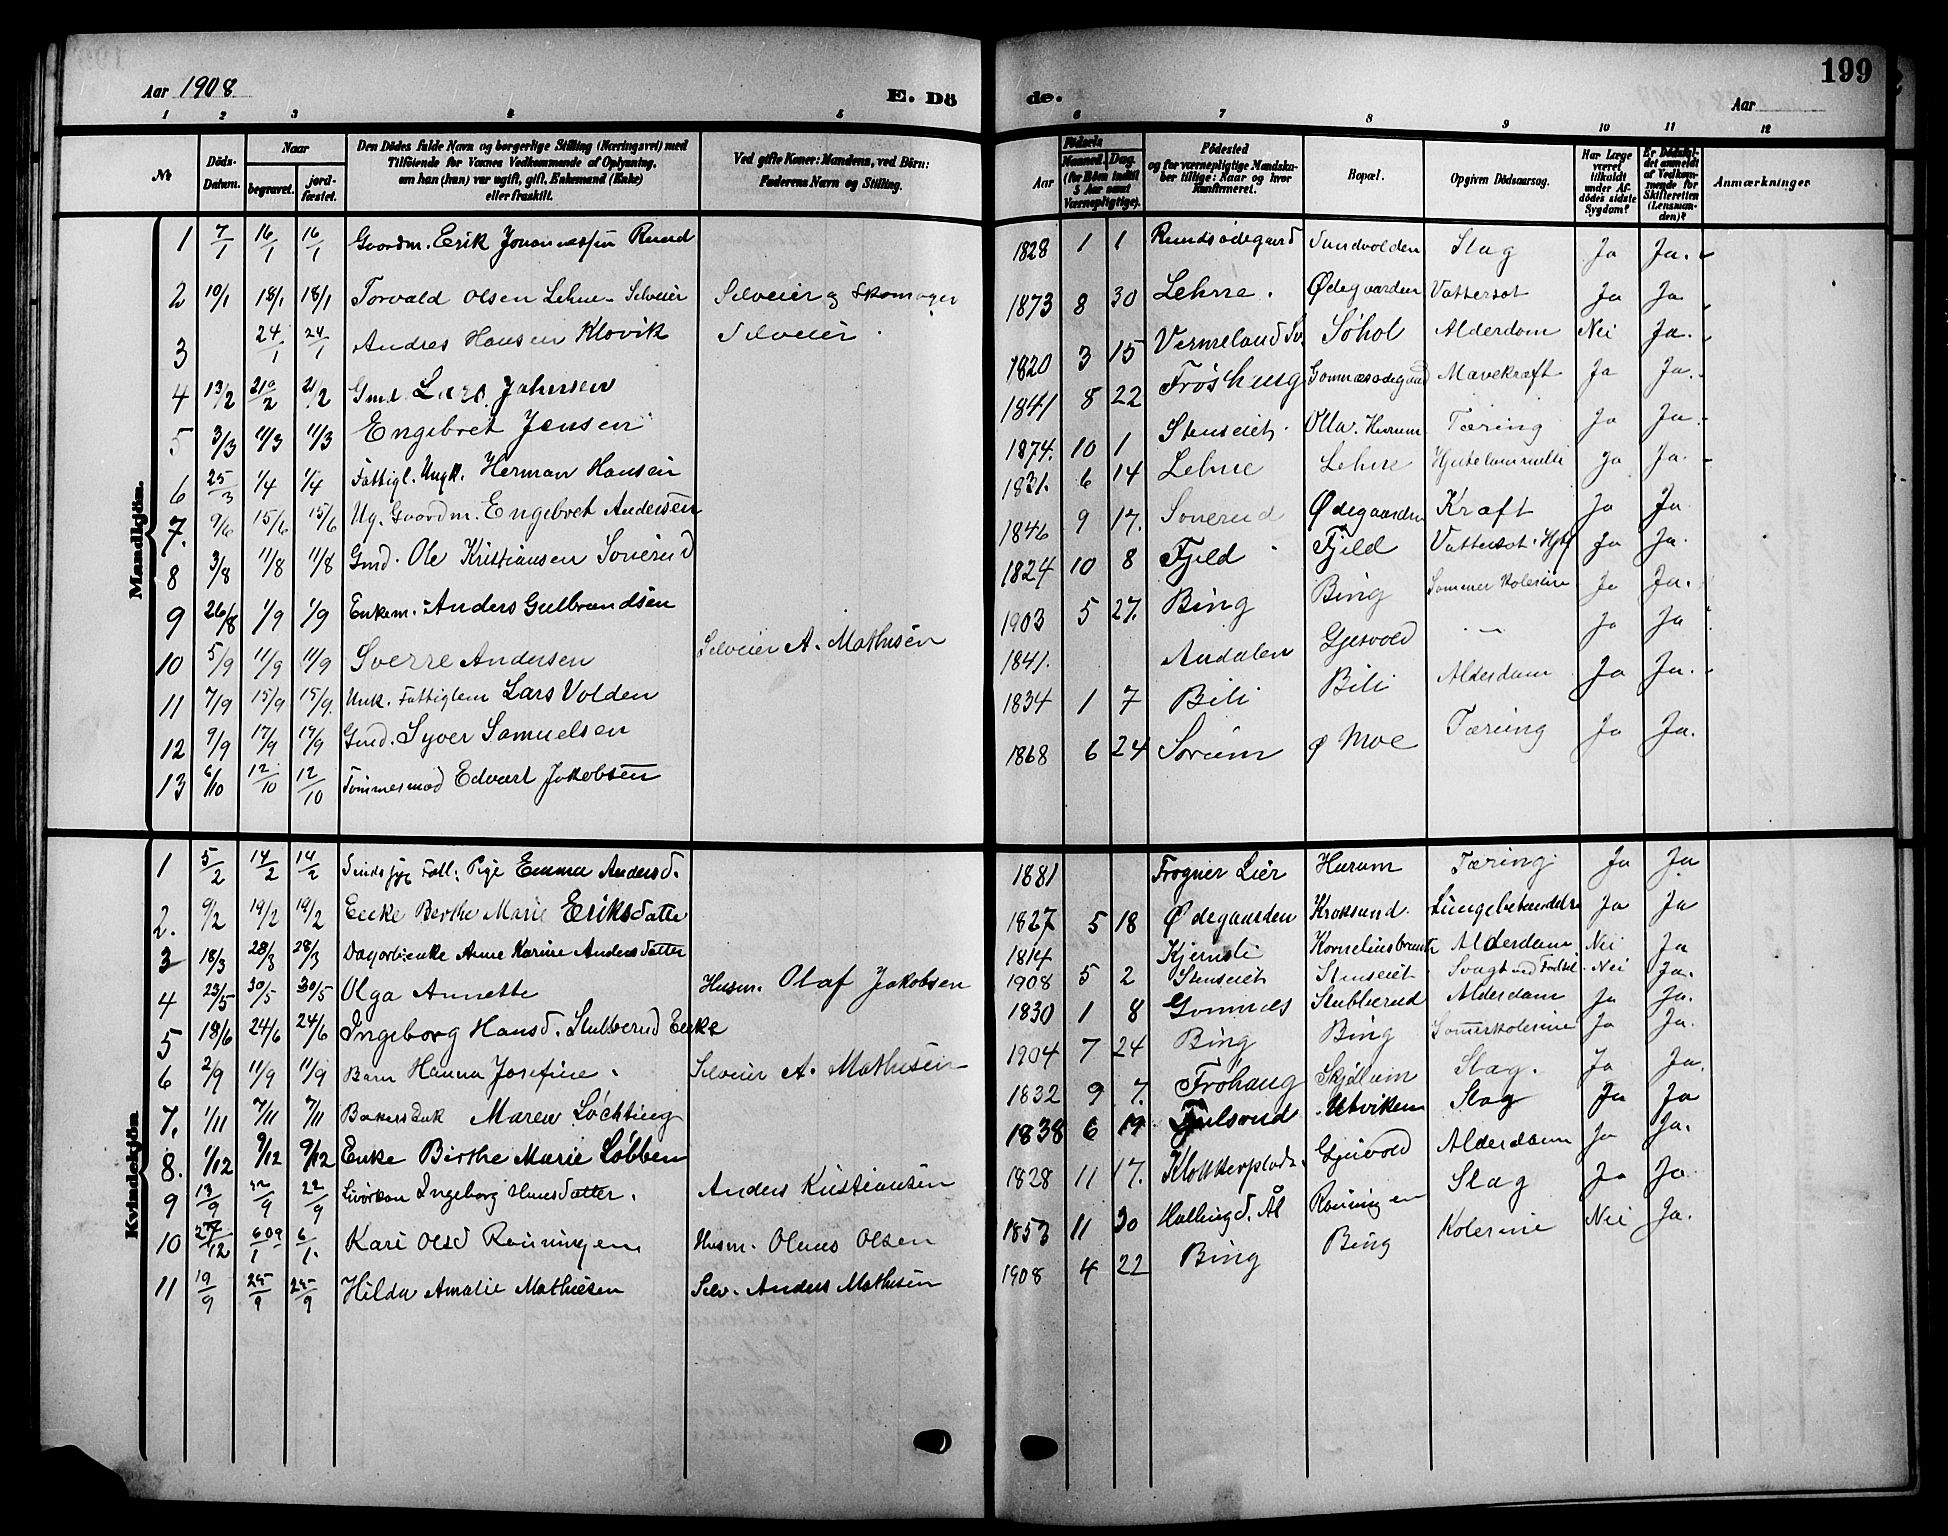 199
Aar 1908
E. Dö
de.
Aar
1 2 3 4 5
6 7 8 9 10 11 12
No
Döds-Datum.
Naar
begravet.
jord-fæstet.
Den Dödes fulde Navn og borgerlige Stilling (Næringsvei) med
Tilföiende for Voxnes Vedkommende af Oplysning,
om han (hun) var ugift, gift, Enkemand (Enke)
eller fraskilt.
Ved gifte Koner: Mandens, ved Börn:
Faderens Navn og Stilling.
Födsels
Aar
Maaned. Dag.
(for Börn indtil
5 Aar samt
Værnepligtige).
Födested
og for værnepligtige Mandska-
ber tillige: Naar og hvor
Konfirmeret.
Bopæl.
Opgiven Dödsaarsag.
Har Læge
været
tilkaldt
under Af-
dödes sidste
Sygdom?
Er Dödsfal-
det anmeldt
af Vedkom-
mende for
Skifteretten
(Lensman-
den)?
Anmærkninger
Mandkjön.
1 7/1 16/1 16/1 Gaardm. Erik Johannessen Rund
2 10/1 18/1 18/1 Torvald Olsen Lehne Selveier Selveier og Skomager
3 24/1 24/1 Andres Hansen Klovik Selveier
4 13/2 21/2 21/2 Gmd Lars Johnsen
5 3/3 11/3 11/3 Engebret Jensen
6 25/3 1/4 1/4 Fattigl. Ungk. Herman Hansen
7. 9/6 15/6 15/6 Ug. Gaardm. Engebret Andersen
8 3/8 11/8 11/8 Gmd. Ole Kristiansen Sonerud
9 26/8 1/9 1/9 Enkem. Anders Gulbrandsen
10 5/9 11/9 11/9 Sverre Andersen Selveier A. Mathisen
11 7/9 15/9 15/9. Unk. Fattiglem Lars Volden
12 9/9 17/9 17/9 Gmd. Syver Samuelsen
13 6/10 12/10 12/10 Tømmermnd Edvart Jakobsen
1828 1 1 Rundsødegaard Sundvolden Slag Ja Ja.
1873 8 30 Lehne. Ødegaarden Vattersot Ja Ja
1820 3 15 Vermeland Sv. Søhol Alderdom Nei Ja.
1841 8 22 Frøshaug Gomnæsødegaard Mavekræft Ja Ja.
1874. 10 1 Stenseiet. Olla. Hurum Tæring Ja Ja
1831. 6 14 Lehne Lehne Ja Ja.
1846 9 17. Sonerud Ødegaarden Kræft Ja Ja
1824 10 8 Fjeld Fjeld Vattersot. Ja Ja.
1903 5 27. Bing Bing Sommer Kolerine Ja Ja.
1841. Andalen Gjesvold — Ja Ja
1834 1 7 Bili Bili Alderdom Ja Ja.
1868 6 24 Sørum Moe Tæring Ja Ja.
Kvindekjön
1 5/2 14/2 14/2 Pige Emma Andersd.
2. 9/2 19/2 19/2 Enke Berthe Marie Eriksdatter
3 18/3 28/3 28/3 Anne Karine Andersdatter
4 23/5 30/5 30/5 Olga Annette Husm. Olaf Jakobsen
5 18/6 24/6 24/6 Ingeborg Hansd. Stubberud Enke
6 2/9 11/9 11/9 Barn Hanna Josefine. Selveier A. Mathisen
7. 1/11 7/11 7/11 Bakers Enk Maren Løchting
8. 1/12 9/12 9/12 Enke Birthe Marie Løbben
9 13/9 22/9 22/9 Ingeborg Hansdatter. Anders Kristiansen
10 27/12 6/1 6/1. Kari Olsd Rønningen Husm. Olaus Olsen
11 19/9 25/9 25/9 Hilda Amalie Mathiesen Selv. Anders Mathisen
1881 Frogner Lier Hurum Tæring Ja Ja
1827 5 18 Ødegaarden Kroksund. Lungebetændelse Ja Ja
1814 Kjernsli Alderdom Nei Ja
1908 5 2 Stenseiet Stenseiet Svagt ved Fødsel Nei Ja.
1830 1 8 Gomnæs Stubberud Alderdom Ja Ja.
1904 7 24 Bing Bing Somerkolerine Ja Ja.
1832 9 7. Frøhaug Skjølum Slag. Ja Ja.
1838 6 19 Utviken Slag Ja Ja
1828 11 17. Klokkerplads. Gjesvold Alderdom Ja Ja.
1853 11 30 Hallingd. Ål Rønningen Slag Ja Ja
1908 4 22 Bing Bing Kolerine Nei Ja.